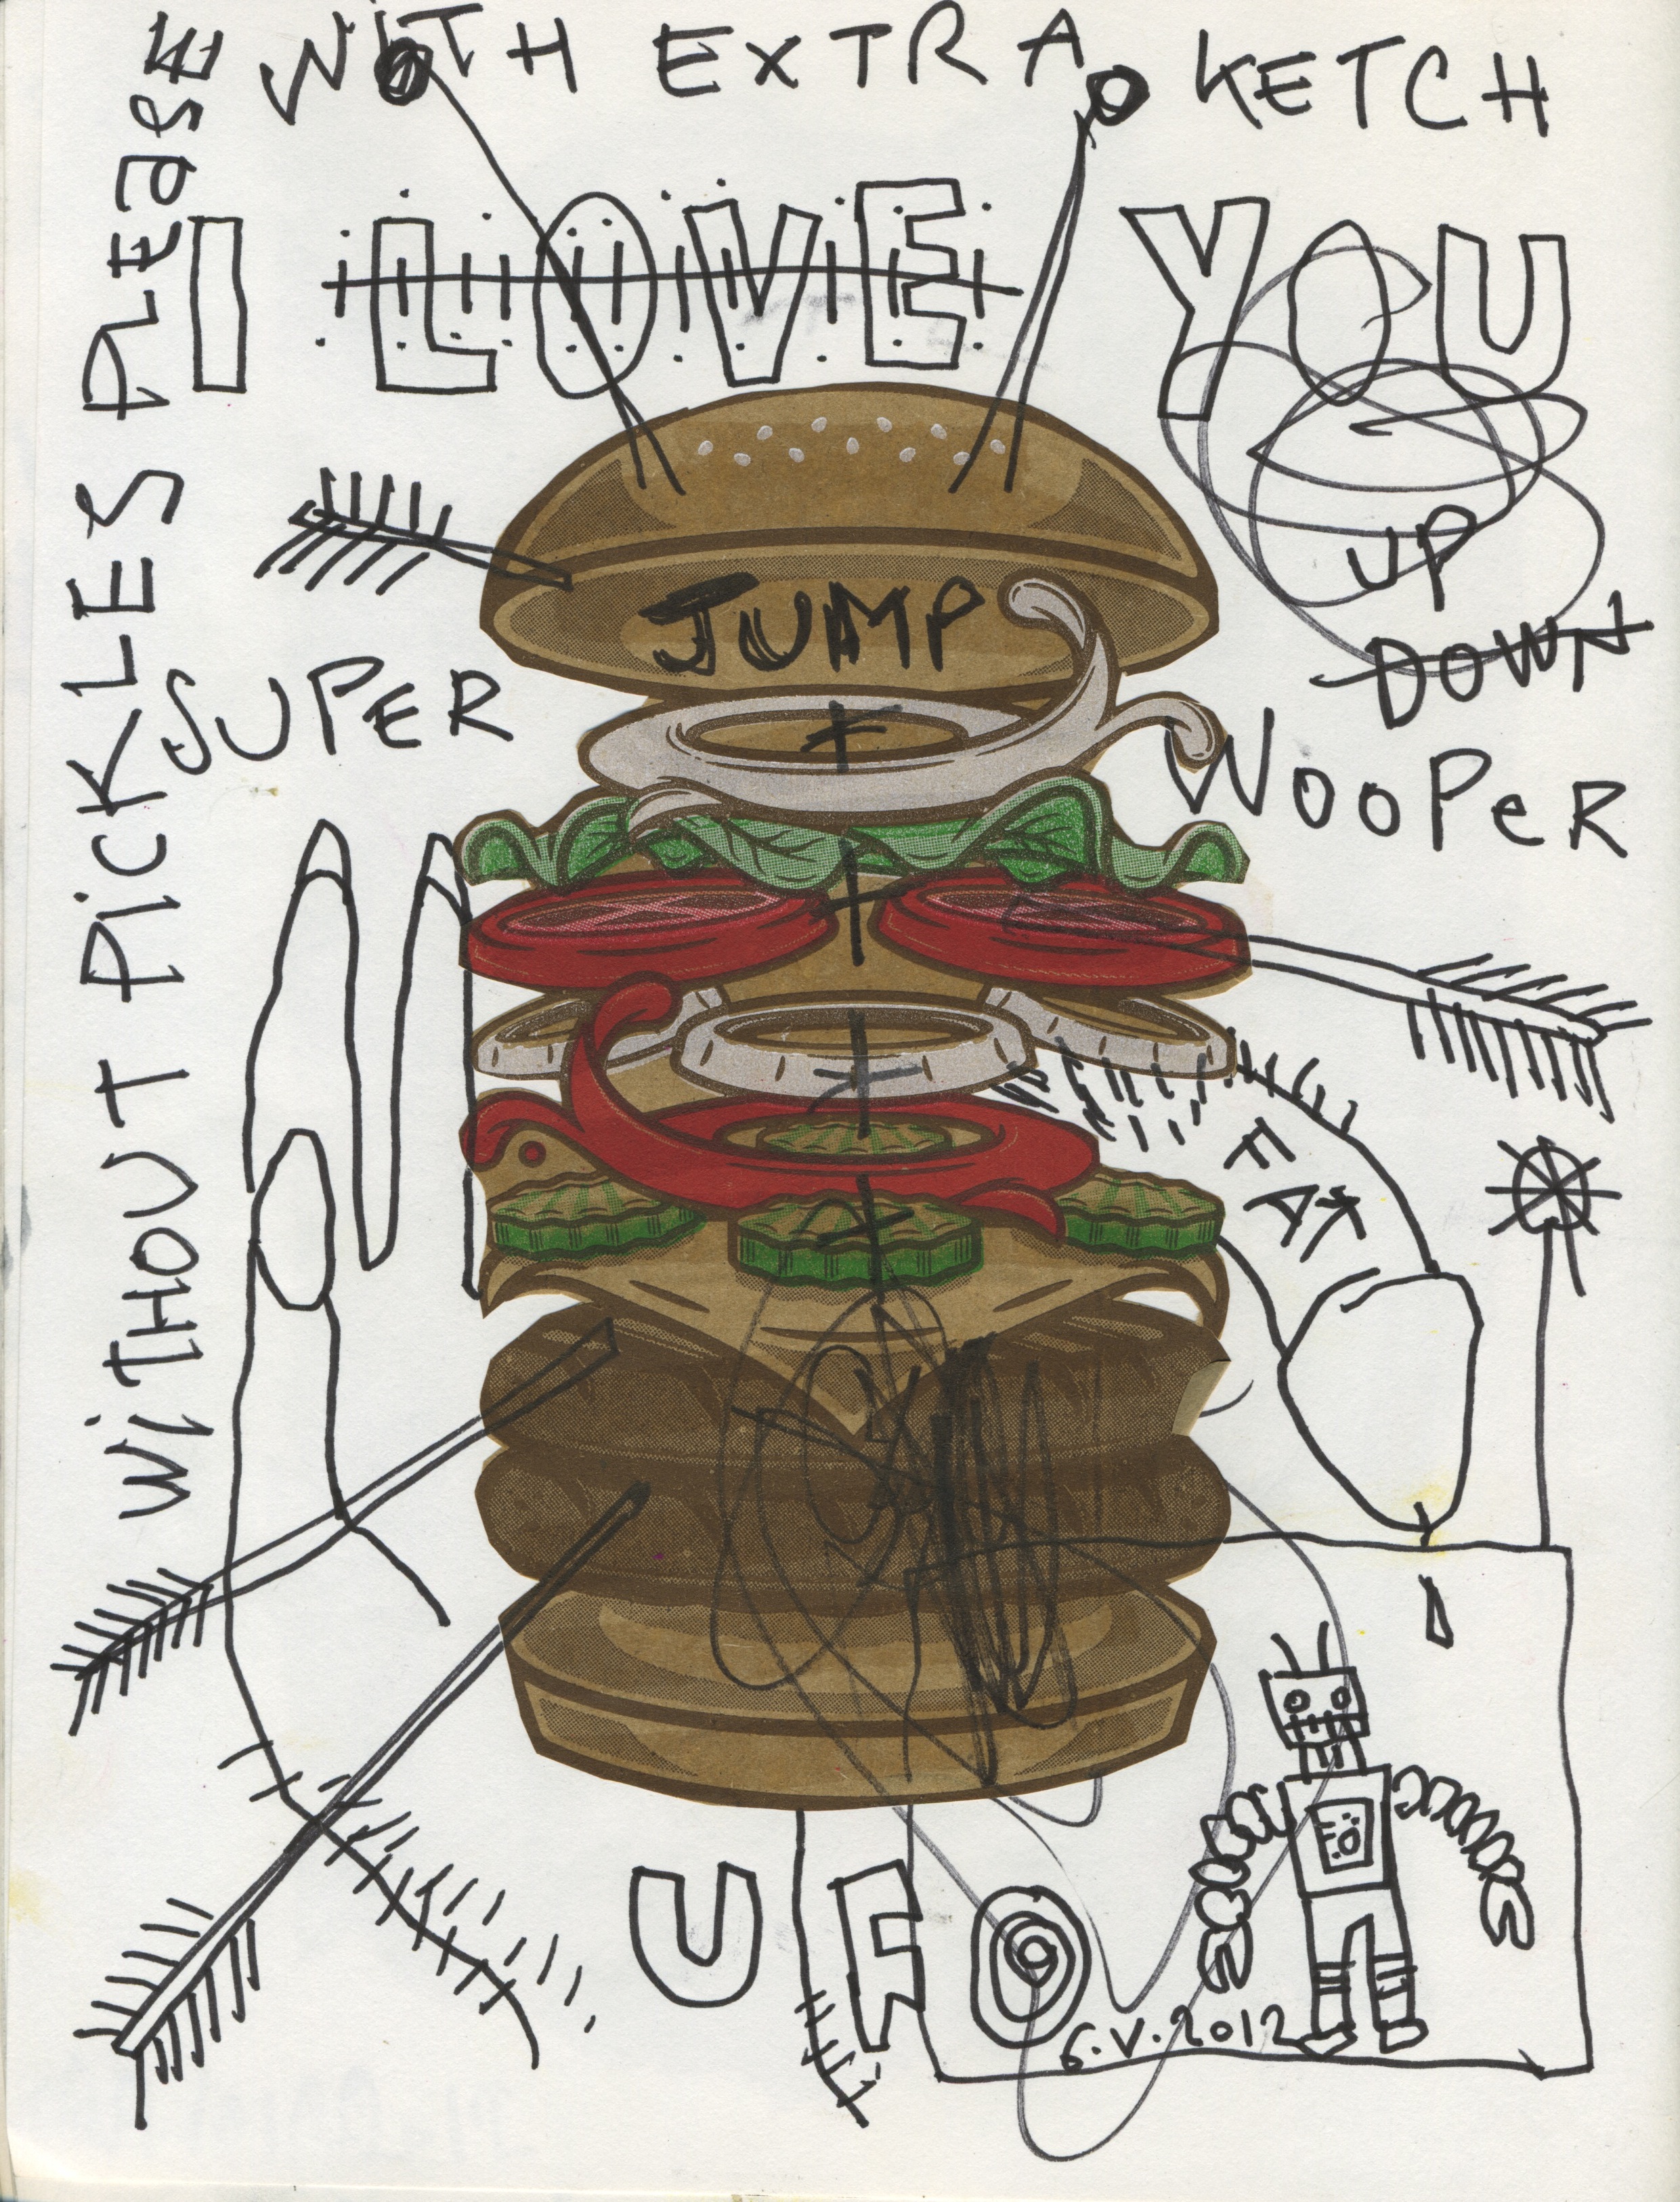 WITH EXTRA KETCH
I LOVE YOU
WiTHOUT PiCKLES PLEaSE
UP
DOWN
JUMP
SUPER
WOOPeR
FAT
UFO
G.V.2012